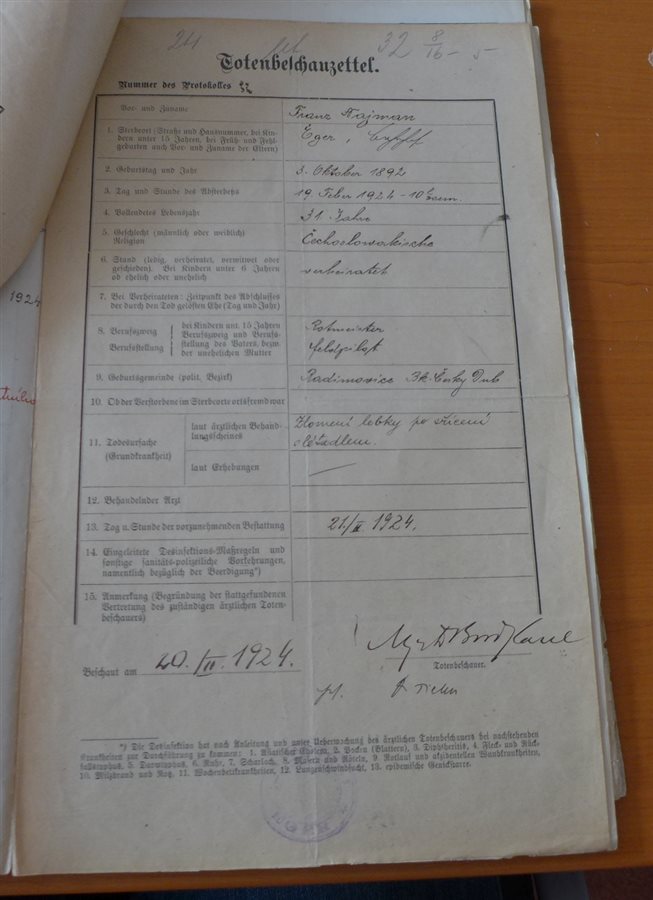 24 32 8/16 - 5
Totenbeschauzettel.
Nummer des Protokolles 32
Vor- und Zuname
Franz Najman
1. Sterbeort (Straße und Hausnummer, bei Kin-
dern unter 15 Jahren, bei Früh- und Fehl-
geburten auch Vor- und Zuname der Eltern)
Eger,
2. Geburtstag und Jahr
3. Oktober 1892
3. Tag und Stunde des Absterbens
19. Feber 1924 - 10
4. Vollendetes Lebensjahr
31 Jahre
5. Geschlecht (männlich oder weiblich)
Religion
Čechoslowakische
6. Stand (ledig, verheiratet, verwitwet oder
geschieden). Bei Kindern unter 6 Jahren
ob ehelich oder unehelich
verheiratet
7. Bei Verheirateten: Zeitpunkt des Abschlusses
der durch den Tod gelösten Ehe (Tag und Jahr)
8. Berufszweig
Berufsstellung
bei Kindern unt. 15 Jahren
Berufszweig und Berufs-
stellung des Vaters, bezw.
der unehelichen Mutter
Rotmeister
Feldpilot
9. Geburtsgemeinde (polit. Bezirk)
Radimovice Bk. Česky Dub
10. Ob der Verstorbene im Sterbeorte ortsfremd war
11. Todesursache
(Grundkrankheit)
laut ärztlichen Behand-
lungsscheines
Zlomení lebky po sřícení
s létadlem.
laut Erhebungen
—
12. Behandelnder Arzt
13. Tag u. Stunde der vorzunehmenden Bestattung
21./II 1924.
14. Eingeleitete Desinfektions-Maßregeln und
sonstige sanitäts-polizeiliche Vorkehrungen,
namentlich bezüglich der Beerdigung*)
15. Anmerkung (Begründung der stattgefundenen
Vertretung des zuständigen ärztlichen Toten-
beschauers)
Beschaut am 20./II. 1924.
Totenbeschauer.
*) Die Desinfektion hat nach Anleitung und unter Ueberwachung des ärztlichen Totenbeschauers bei nachstehenden
Krankheiten zur Durchführung zu kommen: 1. Asiatischer Cholera, 2. Pocken (Blattern), 3. Diphtheritis, 4. Fleck- und Rück-
fallstyphus, 5. Darmtyphus, 6. Ruhr, 7. Scharlach, 8. Masern und Röteln, 9. Rotlauf und akzidentellen Wundkrankheiten,
10. Milzbrand und Rotz, 11. Wochenbettkrankheiten, 12. Lungenschwindsucht, 13. epidemische Genickstarre.
1924